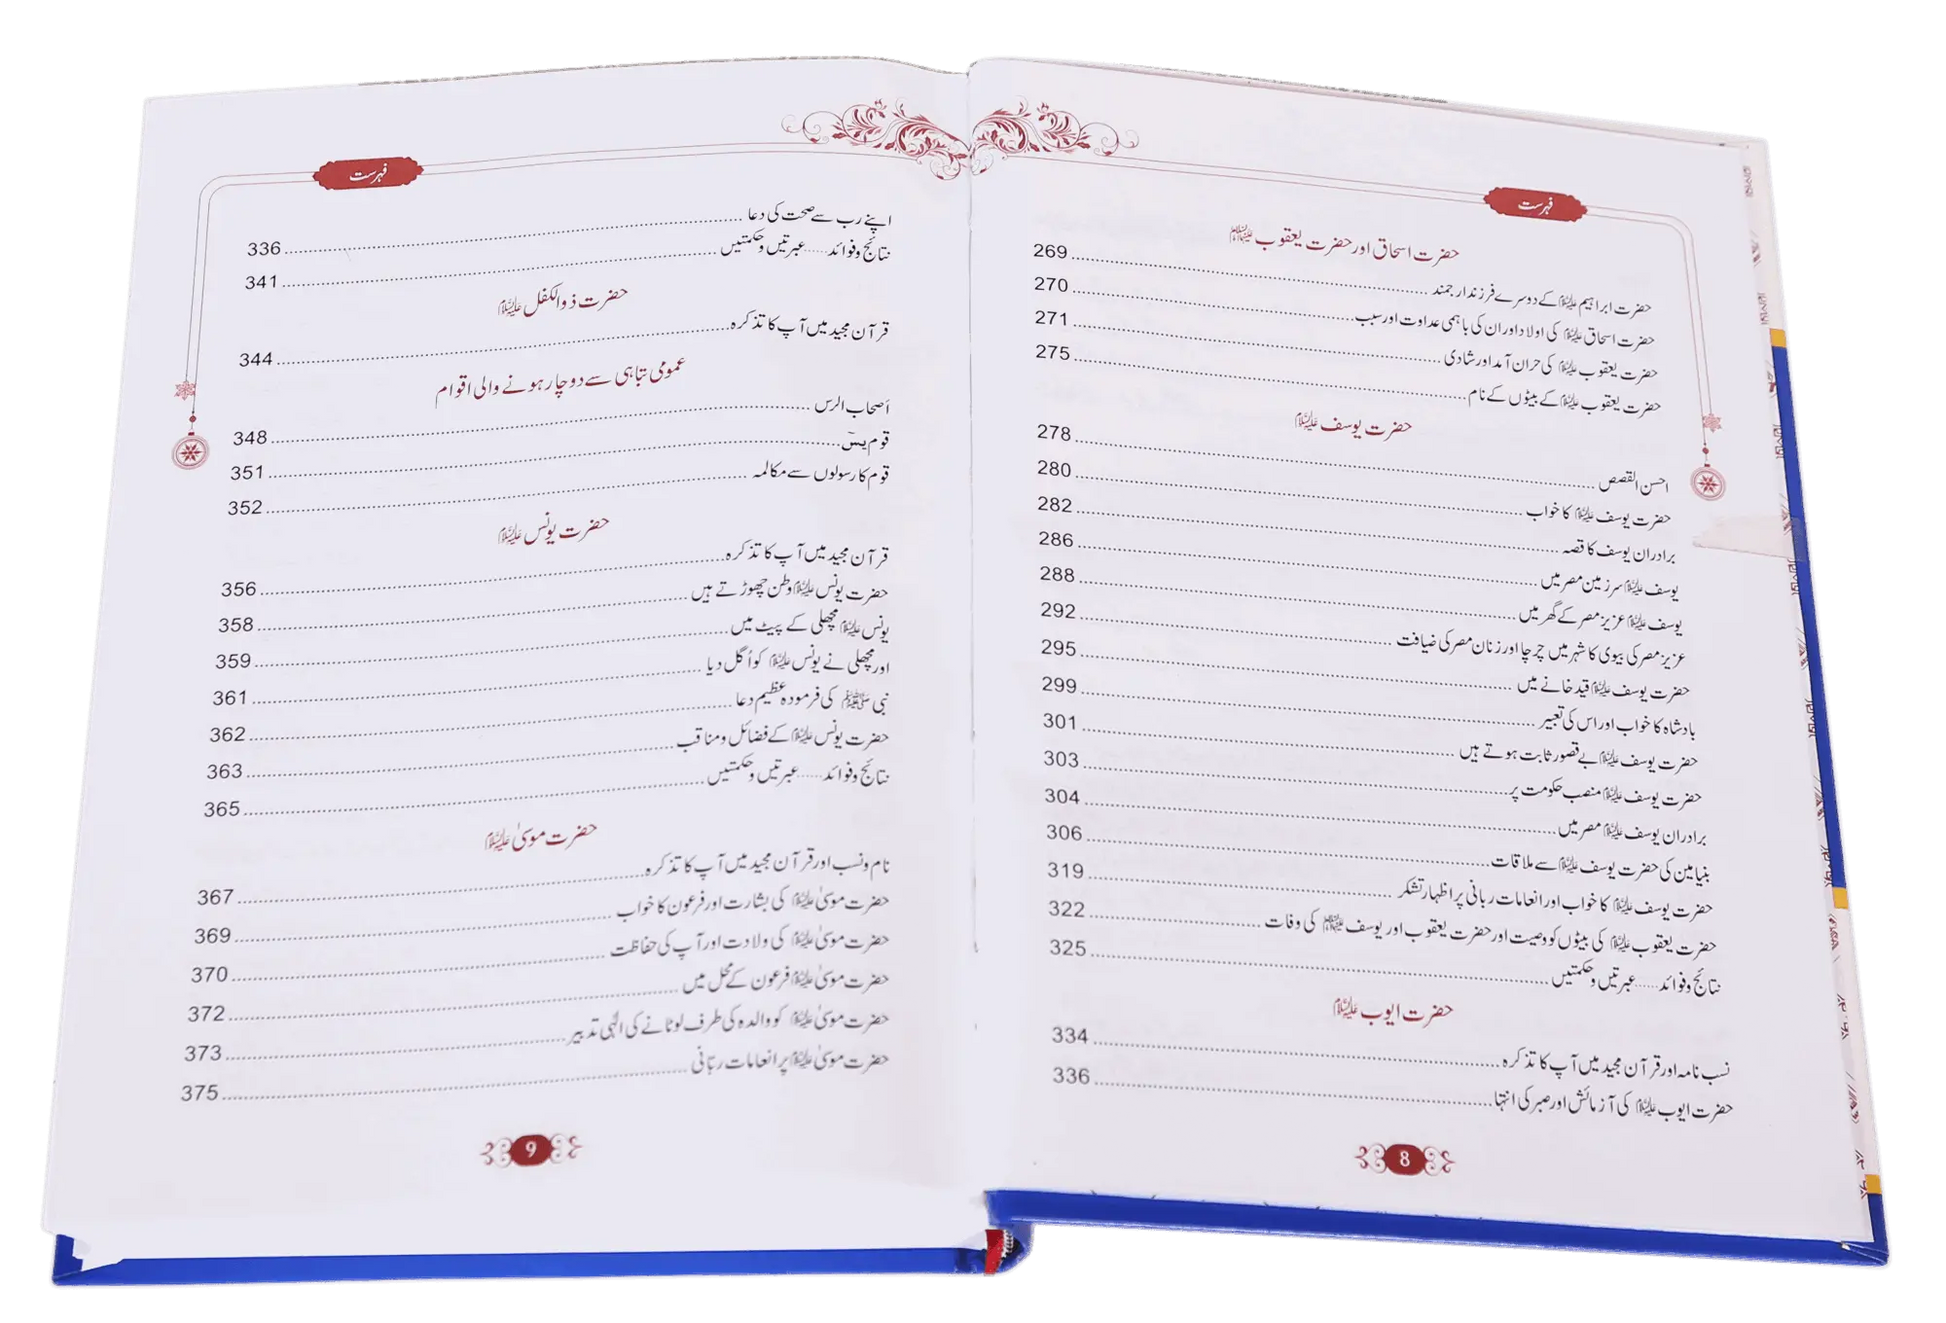 فہرست
حضرت اسحاق اور حضرت یعقوب علیہما السلام
حضرت ابراہیم علیہ السلام کے دوسرے فرزند ارجمند 269
حضرت اسحاق علیہ السلام کی اولاد اور ان کی باہمی عداوت اور سبب 270
حضرت یعقوب علیہ السلام کی حران آمد اور شادی 271
حضرت یعقوب علیہ السلام کے بیٹوں کے نام 275
حضرت یوسف علیہ السلام
احسن القصص 278
حضرت یوسف علیہ السلام کا خواب 280
برادران یوسف کا قصہ 282
یوسف علیہ السلام سرزمین مصر میں 286
یوسف علیہ السلام عزیز مصر کے گھر میں 288
عزیز مصر کی بیوی کا شہر میں چرچا اور زنان مصر کی ضیافت 292
حضرت یوسف علیہ السلام قید خانے میں 295
بادشاہ کا خواب اور اس کی تعبیر 299
حضرت یوسف علیہ السلام بے قصور ثابت ہوتے ہیں 301
حضرت یوسف علیہ السلام منصب حکومت پر 303
برادران یوسف علیہ السلام مصر میں 304
بنیامین کی حضرت یوسف علیہ السلام سے ملاقات 306
حضرت یوسف علیہ السلام کا خواب اور انعامات ربانی پر اظہار تشکر 319
حضرت یعقوب علیہ السلام کی بیٹوں کو وصیت اور حضرت یعقوب اور یوسف علیہما السلام کی وفات 322
نتائج و فوائد ..... عبرتیں و حکمتیں 325
حضرت ایوب علیہ السلام
نسب نامہ اور قرآن مجید میں آپ کا تذکرہ 334
حضرت ایوب علیہ السلام کی آزمائش اور صبر کی انتہا 336
8
فہرست
اپنے رب سے صحت کی دعا 336
نتائج و فوائد ..... عبرتیں و حکمتیں 341
حضرت ذوالکفل علیہ السلام
قرآن مجید میں آپ کا تذکرہ 344
عمومی تباہی سے دوچار ہونے والی اقوام
اَصحاب الرس 348
قوم یٰسٓ 351
قوم کا رسولوں سے مکالمہ 352
حضرت یونس علیہ السلام
قرآن مجید میں آپ کا تذکرہ 356
حضرت یونس علیہ السلام وطن چھوڑتے ہیں 358
یونس علیہ السلام مچھلی کے پیٹ میں 359
اور مچھلی نے یونس علیہ السلام کو اُگل دیا 361
نبی ﷺ کی فرمودہ عظیم دعا 362
حضرت یونس علیہ السلام کے فضائل و مناقب 363
نتائج و فوائد ..... عبرتیں و حکمتیں 365
حضرت موسیٰ علیہ السلام
نام و نسب اور قرآن مجید میں آپ کا تذکرہ 367
حضرت موسیٰ علیہ السلام کی بشارت اور فرعون کا خواب 369
حضرت موسیٰ علیہ السلام کی ولادت اور آپ کی حفاظت 370
حضرت موسیٰ علیہ السلام فرعون کے محل میں 372
حضرت موسیٰ علیہ السلام کو والدہ کی طرف لوٹانے کی الٰہی تدبیر 373
حضرت موسیٰ علیہ السلام پر انعامات ربّانی 375
9